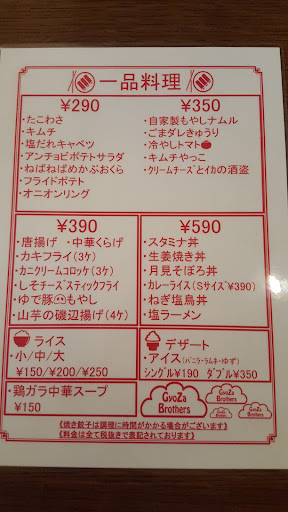 一品料理
¥290
・たこわさ
・キムチ
・塩だれキャベツ
・アンチョビポテトサラダ
・ねばねばめかぶおくら
・フライドポテト
・オニオンリング
¥350
・自家製もやしナムル
・ごまダレきゅうり
・冷やしトマト
・キムチやっこ
・クリームチーズとイカの酒盗
¥390
・唐揚げ ・中華くらげ
・カキフライ(3ケ)
・カニクリームコロッケ(3ケ)
・しそチーズスティックフライ
・ゆで豚もやし
・山芋の磯辺揚げ(4ケ)
¥590
・スタミナ丼
・生姜焼き丼
・月見そぼろ丼
・カレーライス(Sサイズ¥390)
・ねぎ塩鳥丼
・塩ラーメン
ライス
・小/中/大
¥150/¥200/¥250
デザート
・アイス(バニラ・ラムネ・ゆず)
シングル¥190 ダブル¥350
・鶏ガラ中華スープ
¥150
GyoZa
Brothers
GyoZa
Brothers
《焼き餃子は調理に時間がかかる場合がございます》
《料金は全て税抜きで表記されております》